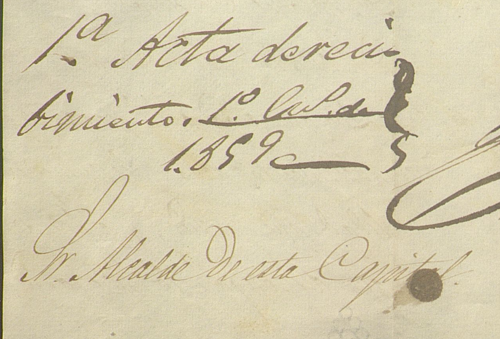 1.ª Acta de reci
bimiento. 1.º de
1.859
Sr. Alcalde De esta Capital.